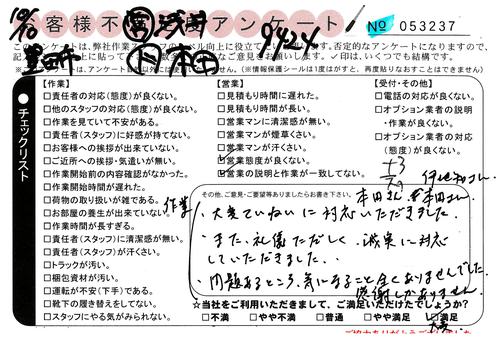 お客様不満足度アンケート!
10/10
浅井
豊田市
本田
9424
No 053237
このアンケートは、弊社作業スタッフのレベル向上に役立てていきます。否定的なアンケートになりますので、
※アンケートは、アンケート目的以外には使用いたしません。(※情報保護シールは1度はがすと、再度貼りなおすことはできません)
チェックリスト
【作業】
□責任者の対応(態度)が良くない。
□他のスタッフの対応(態度)が良くない。
□作業を見ていて不安がある。
□責任者(スタッフ)に好感が持てない。
□お客様への挨拶が出来ていない。
□ご近所への挨拶・気遣いが無い。
□作業開始前の内容確認がなかった。
□作業開始時間が遅れた。
□荷物の取り扱いが雑である。
□お部屋の養生が出来ていない。
□作業時間が長すぎる。
□責任者(スタッフ)に清潔感が無い。
□責任者(スタッフ)が汗くさい。
□トラックが汚い。
□梱包資材が汚い。
□運転が不安(下手)である。
□靴下の履き替えをしてない。
□スタッフにやる気がみられない。
【営業】
□見積もり時間に遅れた。
□見積もり時間が長い。
□営業マンに清潔感が無い。
□営業マンが煙草くさい。
□営業マンが汗くさい。
□営業態度が良くない。
□営業の説明と作業が一致してない。
【受付・その他】
□電話の対応が良くない。
□オプション業者の説明
・作業が良くない。
□オプション業者の対応
(態度)が良くない。
その他、ご意見・ご要望等ありましたらお書き下さい。
作業
本田さん
・大変ていねいに対応いただきました。
・また、礼儀ただしく、誠実に対応
していただきました。
・問題あるところ、気になること全くありませんでした。
感謝しかありません。
☆当社をご利用いただきまして、ご満足いただけたでしょうか?
□不満 □やや不満 □普通 □やや満足 □満足
大変
ご協力ありがとうございました